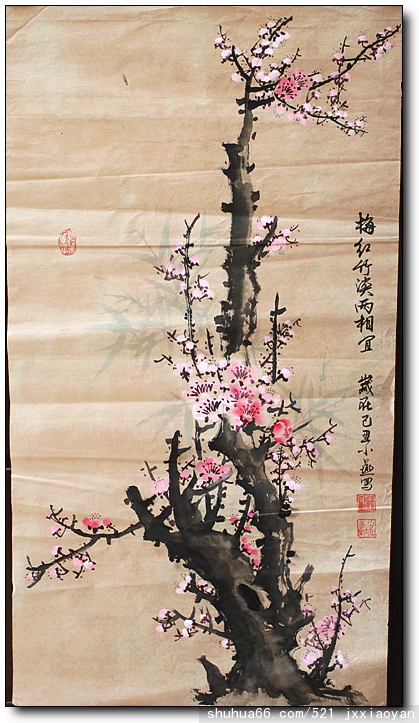 梅红竹淡两相宜 岁在己丑小燕写
shuhua66.com/521 jxxiaoyan